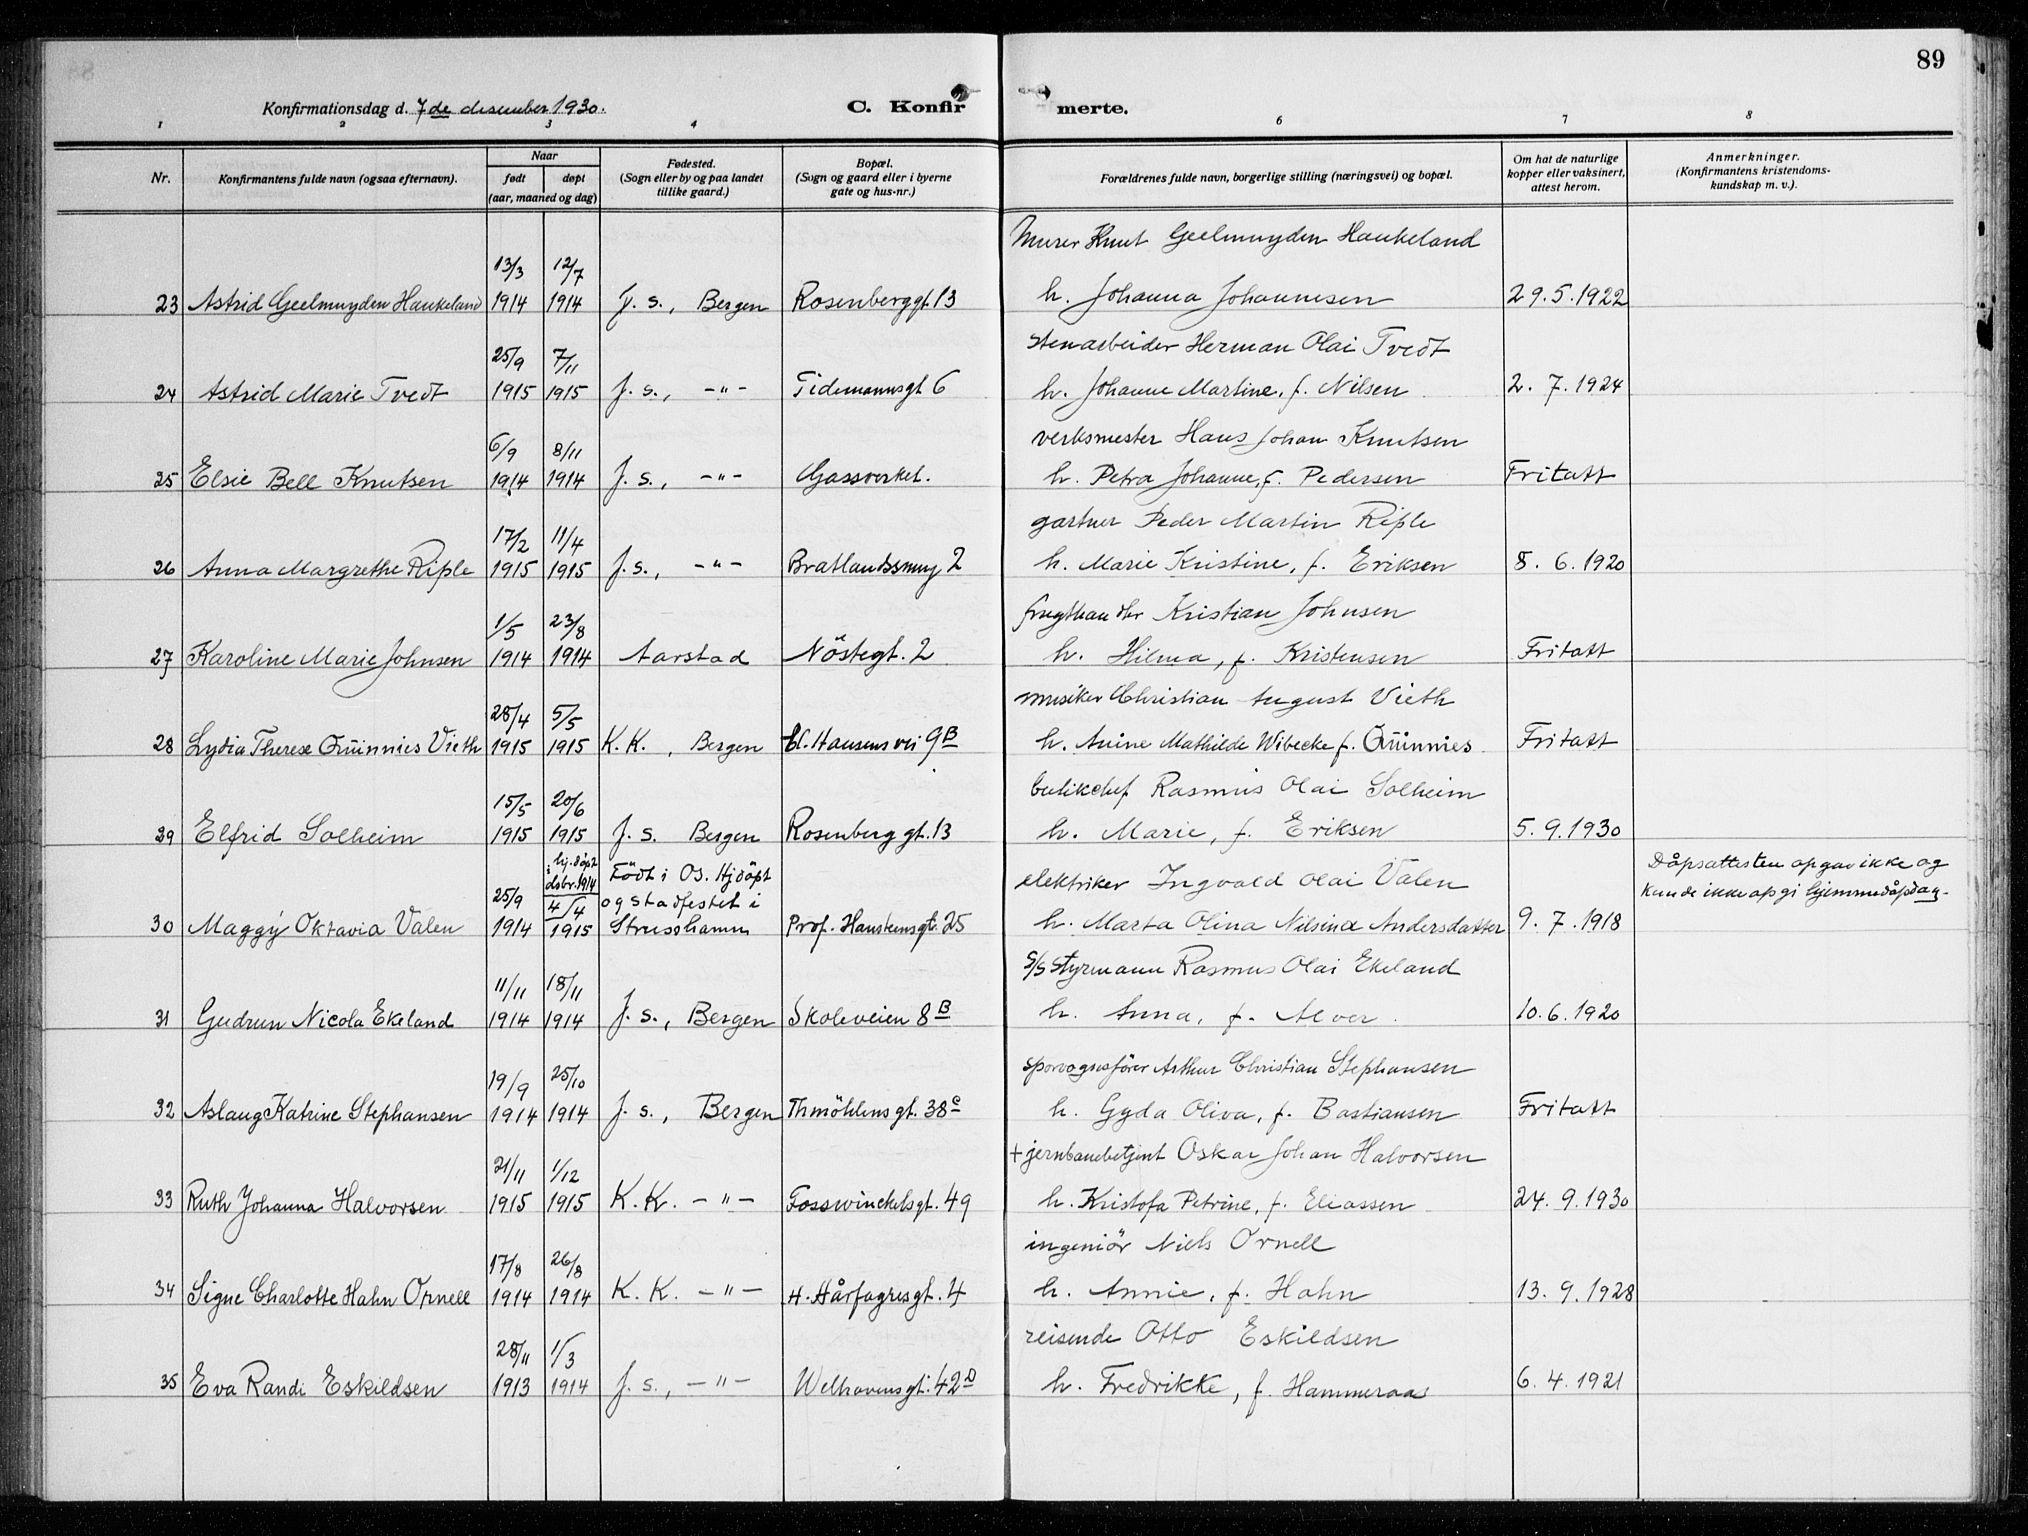 89
Konfirmationsdag d. 7de desember 1930.
C. Konfirmerte.
1 2 3 4 6 7 8
Nr. Konfirmantens fulde navn (ogsaa efternavn). Naar født døpt (aar, maaned og dag) Fødested. (Sogn eller by og paa landet tillike gaard.) Bopæl. (Sogn og gaard eller i byerne gate og hus-nr.) Forældrenes fulde navn, borgerlige stilling (næringsvei) og bopæl. Om hat de naturlige kopper eller vaksinert, attest herom. Anmerkninger. (Konfirmantens kristendoms-kundskap m. v.).
Murer Knut Geelmuyden Haukeland
13/3 12/7
23 Astrid Geelmuyden Haukeland 1914 1914 J. s., Bergen Rosenberggt. 13 h. Johanna Johannesen 29.5.1922
stenarbeider Herman Olai Tvedt
25/9 7/11
24 Astrid Marie Tvedt 1915 1915 J. s., -"- Tidemannsgt. 6 h. Johanne Martine, f. Nilsen 2. 7. 1924
verksmester Hans Johan Knutsen
6/9 8/11
25 Elsie Bell Knutsen 1914 1914 J. s., -"- Gassverket. h. Petra Johanne, f. Pedersen Fritatt
gartner Peder Martin Riple
17/2 11/4
26 Anna Margrethe Riple 1915 1915 J. s., -"- Bratlandssmug 2 h. Marie Kristine, f. Eriksen 8. 6. 1920
frugthandlr Kristian Johnsen
1/5 23/8
27 Karoline Marie Johnsen 1914 1914 Aarstad Nöstegt. 2 h. Hilma, f. Kristensen Fritatt
musiker Christian August Vieth
28/4 5/5
28 Lydia Therese Quinnies Vieth 1915 1915 K. K., Bergen Cl. Hansens vei 9B h. Anine Mathilde Wibecke f. Quinnies Fritatt
butikchef Rasmus Olai Solheim
15/5 20/6
29 Elfrid Solheim 1915 1915 J. s. Bergen Rosenberg gt. 13 h. Marie, f. Eriksen 5. 9. 1930
hj. döpt i dsbr. 1914 Födt i Os. Hjdöpt Dåpsattesten opgav ikke og
elektriker Ingvald Olai Valen
25/9 4/4 og stadfestet i kunde ikke opgi hjemmedåpsdag.
30 Maggy Oktavia Valen 1914 1915 Strusshamn Prof. Hansteensgt. 25 h. Marta Olina Nilsine Andersdatter 9. 7. 1918
S/S Styrmann Rasmus Olai Ekeland
11/11 18/11
31 Gudrun Nicola Ekeland 1914 1914 J. s., Bergen Skoleveien 8B h. Anna, f. Alver. 10. 6. 1920
sporvognsfører Arthur Christian Stephansen
19/9 25/10
32 Aslaug Katrine Stephansen 1914 1914 J. s., Bergen Thmöhlensgt. 38c h. Gyda Oliva, f. Bastiansen Fritatt
+ jernbanebetjent Oskar Johan Halvorsen
21/11 1/12
33 Ruth Johanna Halvorsen 1915 1915 K. K. -"- Fosswinckelsgt. 49 h. Kristofa Petrine, f. Eliassen 24. 9. 1930
ingeniör Niels Ornell
17/8 26/8
34 Signe Charlotte Hahn Ornell 1914 1914 K. K. -"- H. Hårfagresgt. 4 h. Annie, f. Hahn 13. 9. 1928
reisende Otto Eskildsen
28/11 1/3
35 Eva Randi Eskildsen 1913 1914 J. s., -"- Welhavensgt. 42D h. Fredrikke, f. Hammeraas 6. 4. 1921